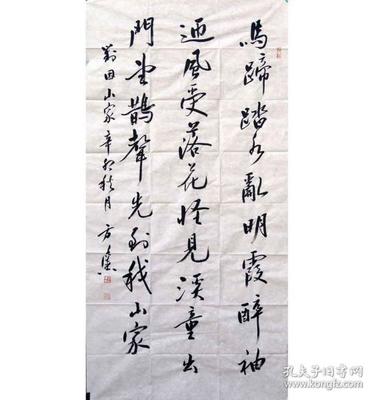 馬蹄踏水亂明霞醉袖
迎風受落花怪見溪童出
門望鵲聲先到我山家
劉因山家辛卯秋月方
孔夫子旧书网
www.kongfz.com